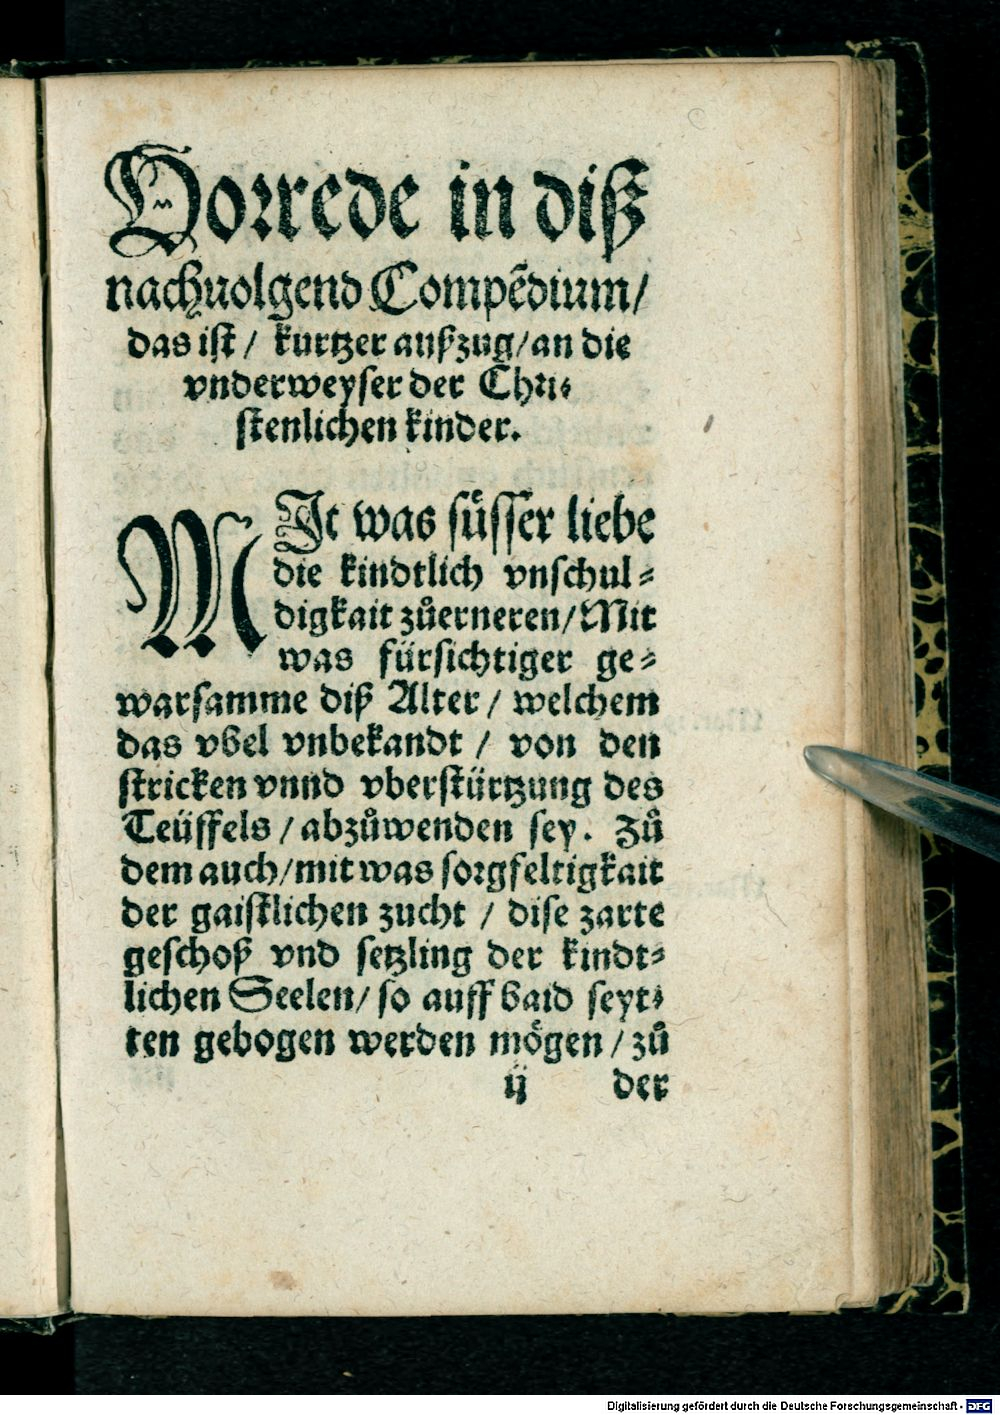 Vorrede in diß
nachuolgend Compẽdium/
das ist / kurtzer außzug/an die
vnderweyser der Chri-
stenlichen kinder.
MIt was süsser liebe
die kindtlich vnschul-
digkait zůerneren/Mit
was fürsichtiger ge-
warsamme diß Alter / welchem
das vbel vnbekandt / von den
stricken vnnd vberstürtzung des
Teüffels / abzůwenden sey. Zů
dem auch/mit was sorgfeltigkait
der gaistlichen zucht / dise zarte
geschoß vnd setzling der kindt-
lichen Seelen/ so auff baid seyt-
ten gebogen werden mögen / zů
ij der
Digitalisierung gefördert durch die Deutsche Forschungsgemeinschaft - DFG